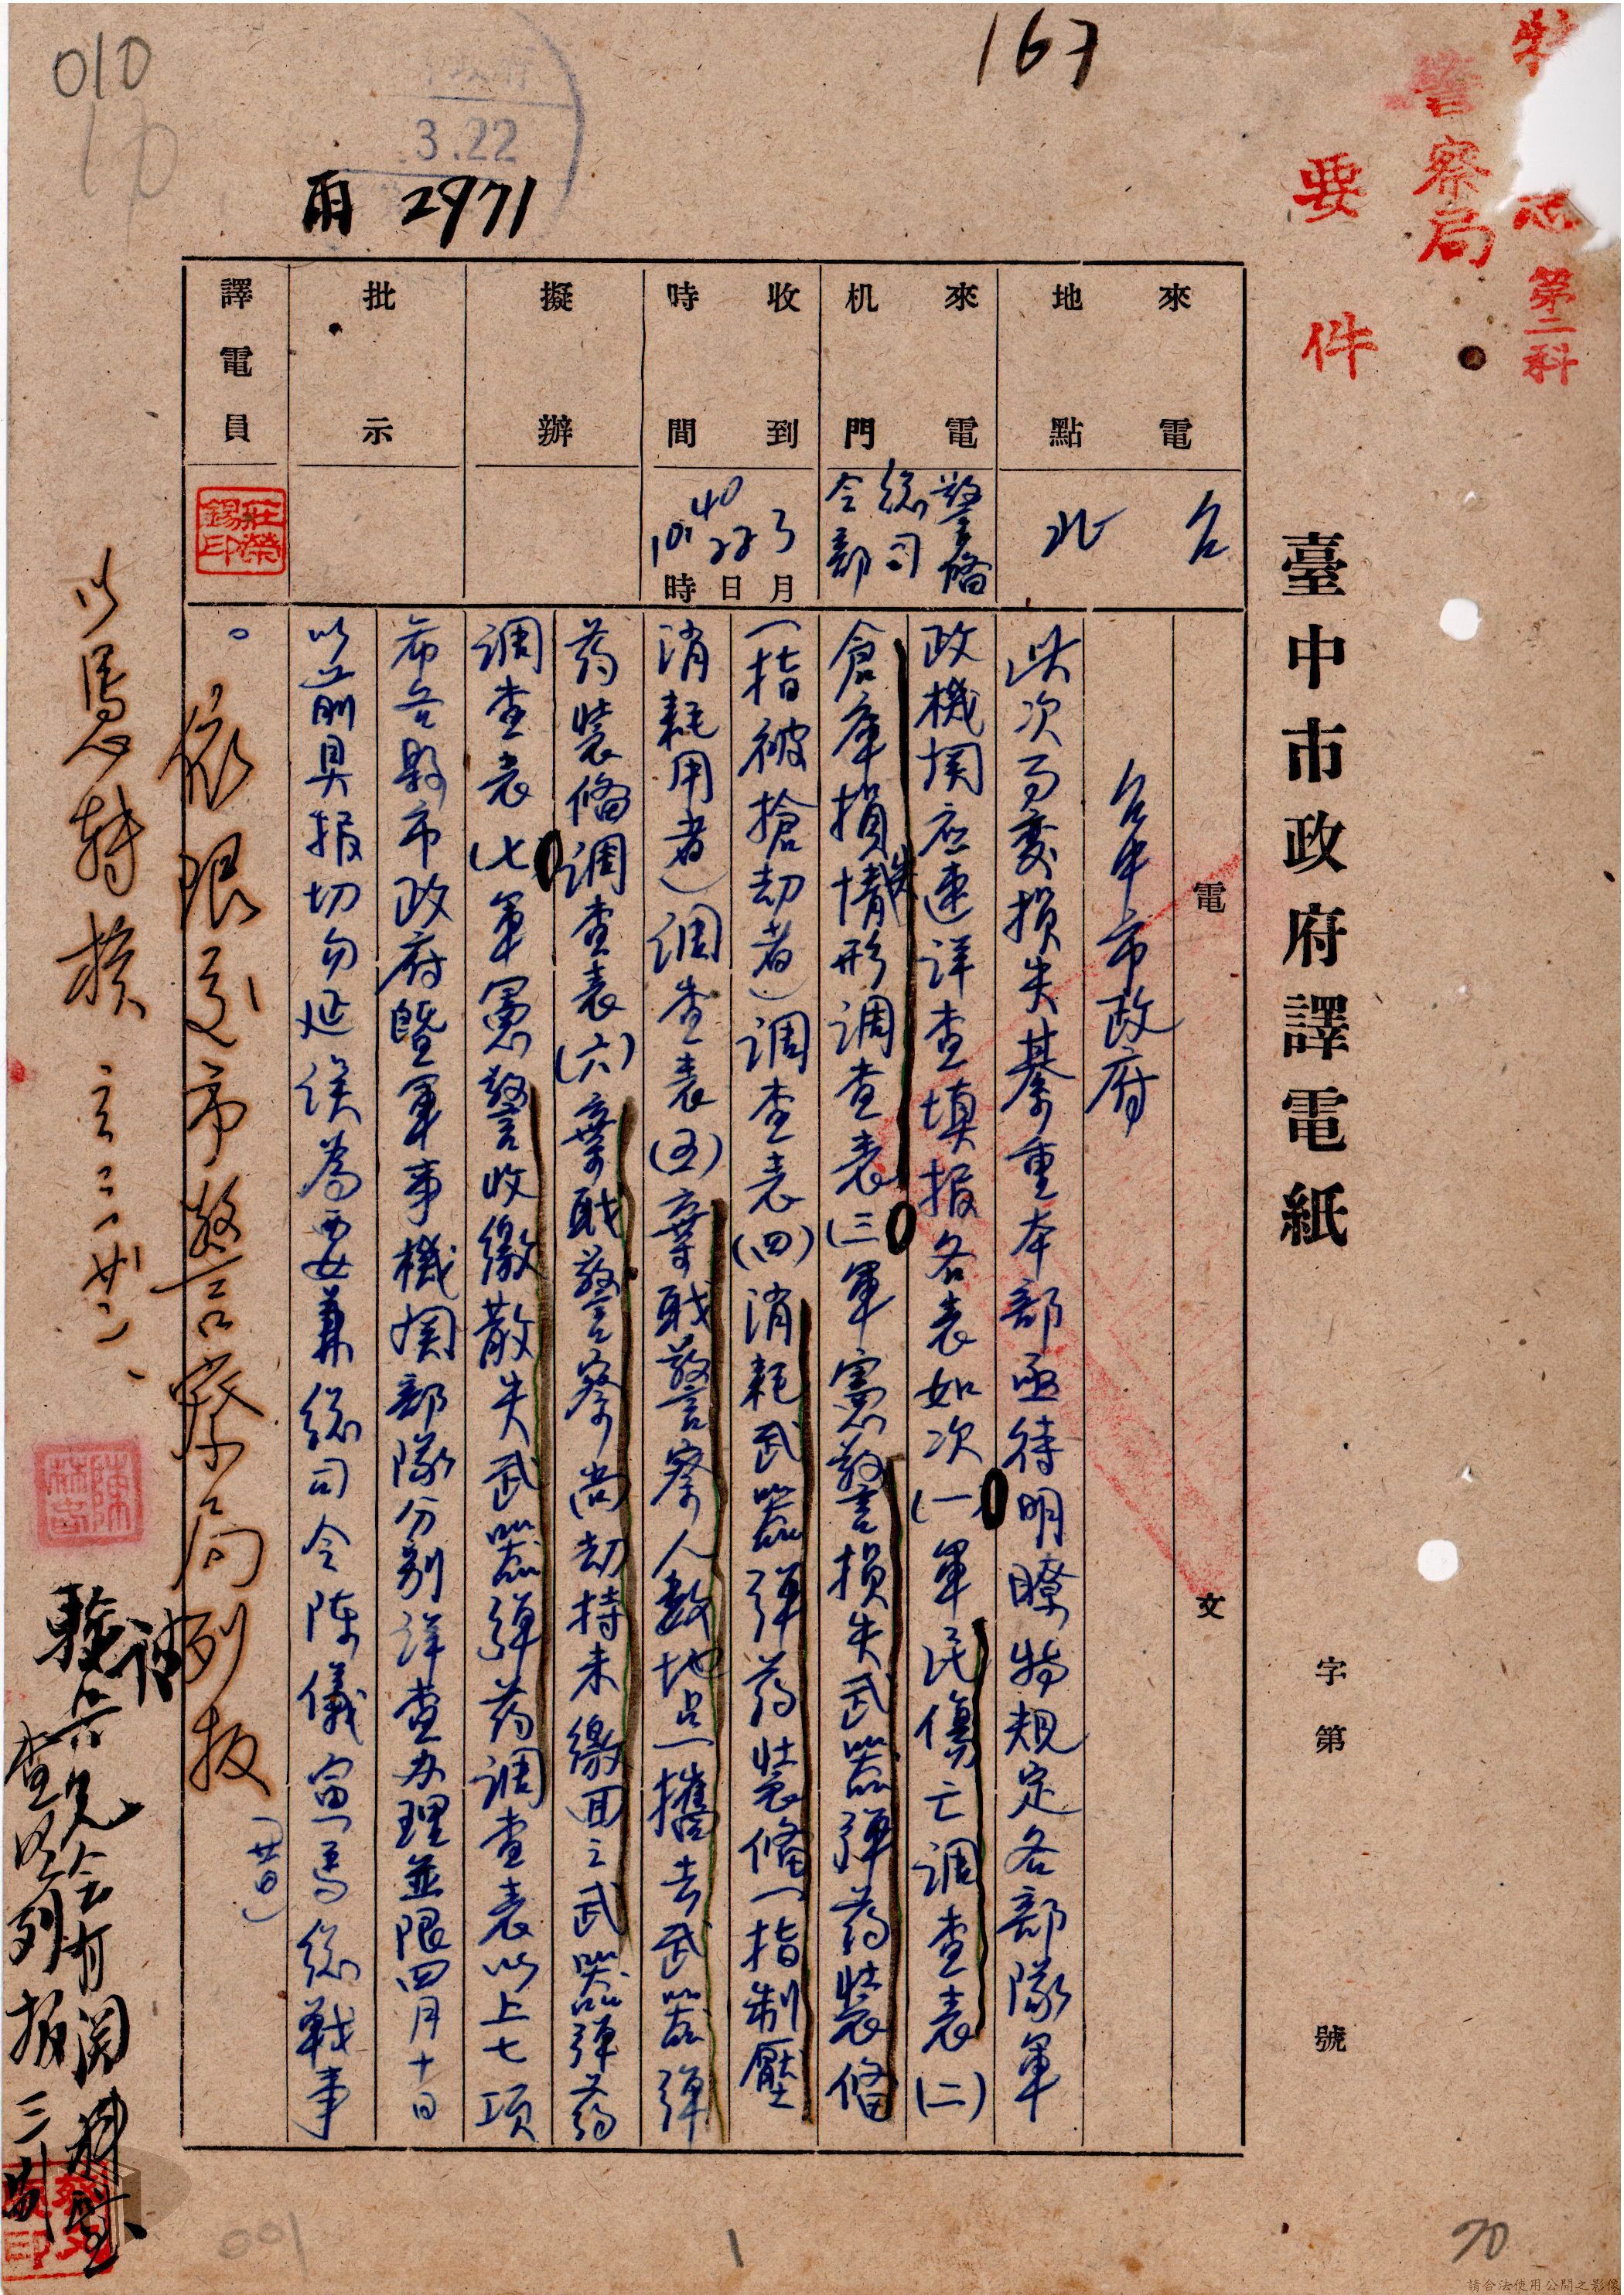 010
167
3.22
雨 2971
警察局
第二科
要件
臺中市政府譯電紙
字第 號
來電地點
台北
來電机關門
警俻總司令部
收到時間
3月22日10.40時
擬辦
批示
譯電員
莊榮錫印
電 文
台中市政府
此次事变損失綦重本部亟待明瞭物規定各部隊軍
政機関应速詳查填报各表如次(一)軍民傷亡調查表(二)
倉庫損失情形調查表(三)軍憲警損失武器弹葯裝俻
(指被搶劫者)調查表(四)消耗武器弹葯裝俻(指制壓
消耗用者)調查表(五)棄职警察人数地点攜去武器弹
葯裝俻調查表(六)棄职警察尚劫持未繳回之武器弹葯
調查表(七)軍憲警收繳散失武器弹葯調查表以上七項
希各县市政府暨軍事機関部隊分别詳查办理並限四月十日
以前具报切勿延误為要兼總司令陳儀寅馬總戰事
。
依限交市警察局列报
以憑轉核
查照列报
001
1
70
請合法使用公開之影像